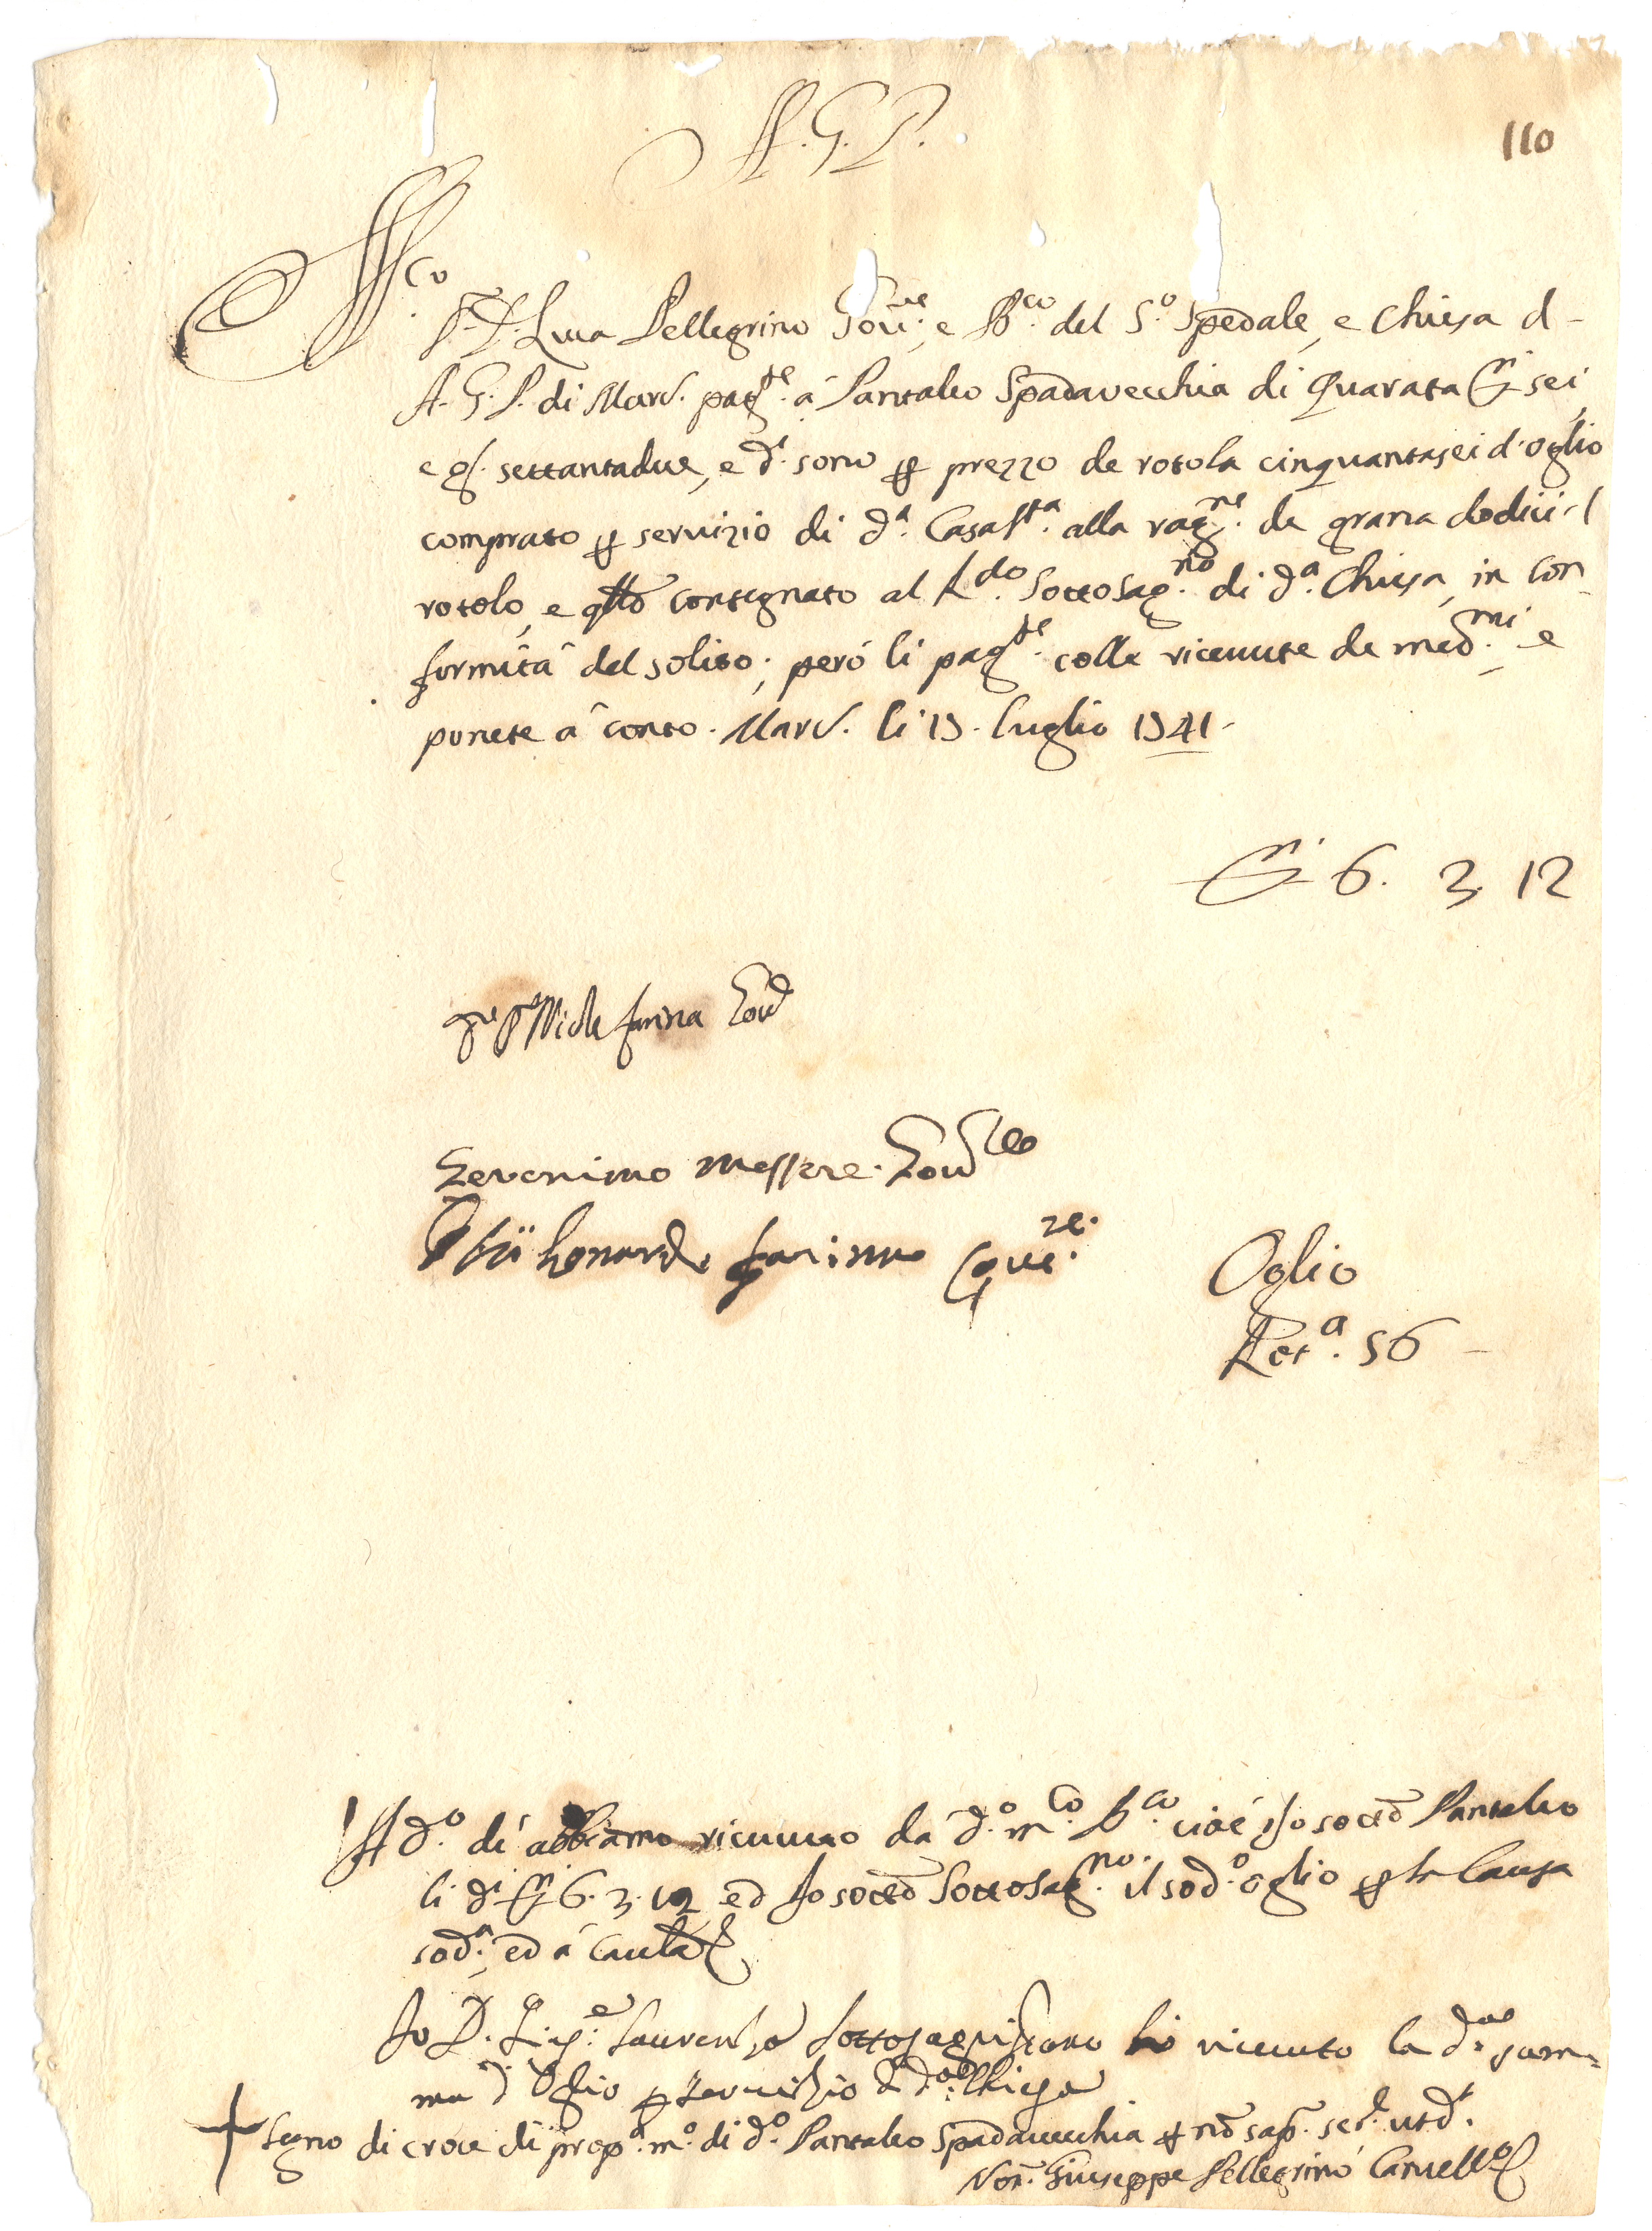 A. G. P.
110
M.co
S.r D. Luca Pellegrino Gov.re, e B.co del S.o Spedale, e Chiesa d-
A. G. P. di Mard. pag.te á Pantaleo Spadavecchia di Quarata D.ti sei,
e g.l settantadue, e d.i sono p prezzo de rotola cinquantasei d'oglio
comprato p servizio di d.a Casa S.ta alla rag.ne de grana dodici l
rotolo, e q̃llo consegnato al R.do Sottosag.no di d.a Chiesa, in con
formitá del solito; peró li pag.te colle ricevute de med.mi, e
ponete á conto. Mard. li 15. luglio 1741-
D.ti 6. 3. 12
Michle farina Gov
Geronimo Messere. Gov
Leonardo farina Gov.re
Oglio
Rot.a 56 -
A d.o dí abbiamo ricevuto da d.o m.co B.co cioé Io sottõ Pantaleo
li d.i D.ti 6. 3. 12 ed Io sottõ Sottosag.no il sod.o oglio p la Causa
sod.a, ed á Cautela
Io D. Laurenzo Sottosagristano hó ricevuto la d.a som=
ma d' Oglio p servizio di d.a Chiesa
+ Segno di croce di prop.a m.o di d.o Pantaleo Spadavecchia p nõ sap. scr.e ut d.r
Not. Giuseppe Pellegrino Canvell.o